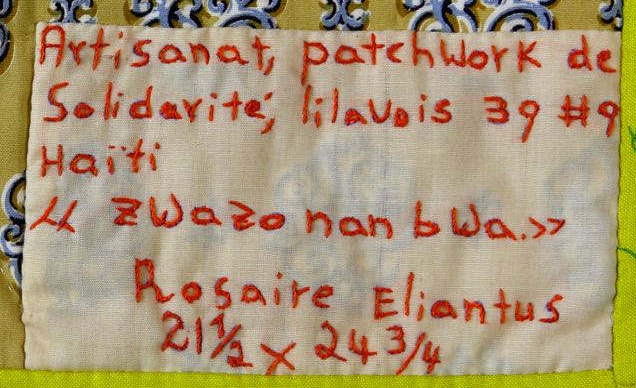 Artisanat, patchwork de
Solidarité, lilavois 39 #9
Haïti
« zwazo nan bwa.»
Rosaire Eliantus
21 1/2 x 24 3/4